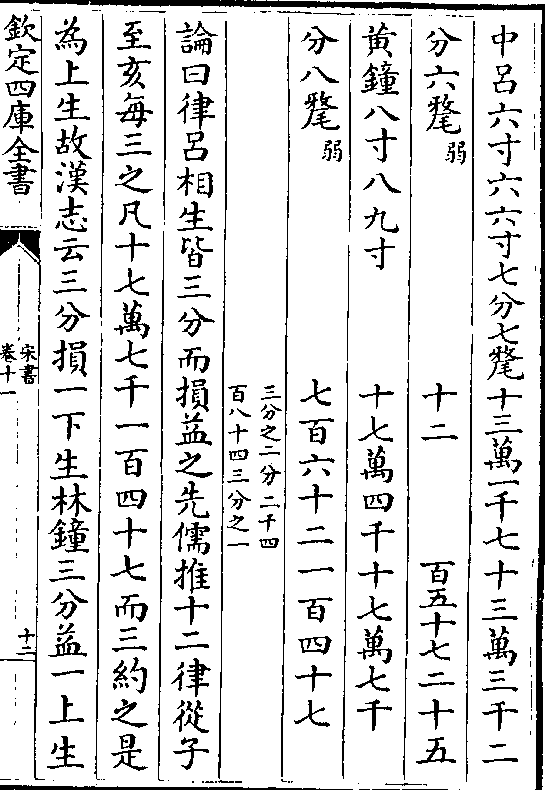 中呂六寸六六寸七分七釐十三萬一千七十三萬三千二
分六釐弱十二百五十七二十五
黃鐘八寸八九寸十七萬四千十七萬七千
分八釐弱七百六十二一百四十七
三分之二分二千四
百八十四三分之一
論曰律呂相生皆三分而損益之先儒推十二律從子
至亥每三之凡十七萬七千一百四十七而三約之是
為上生故漢志云三分損一下生林鐘三分益一上生
欽定四庫全書
宋書
卷十一
十二